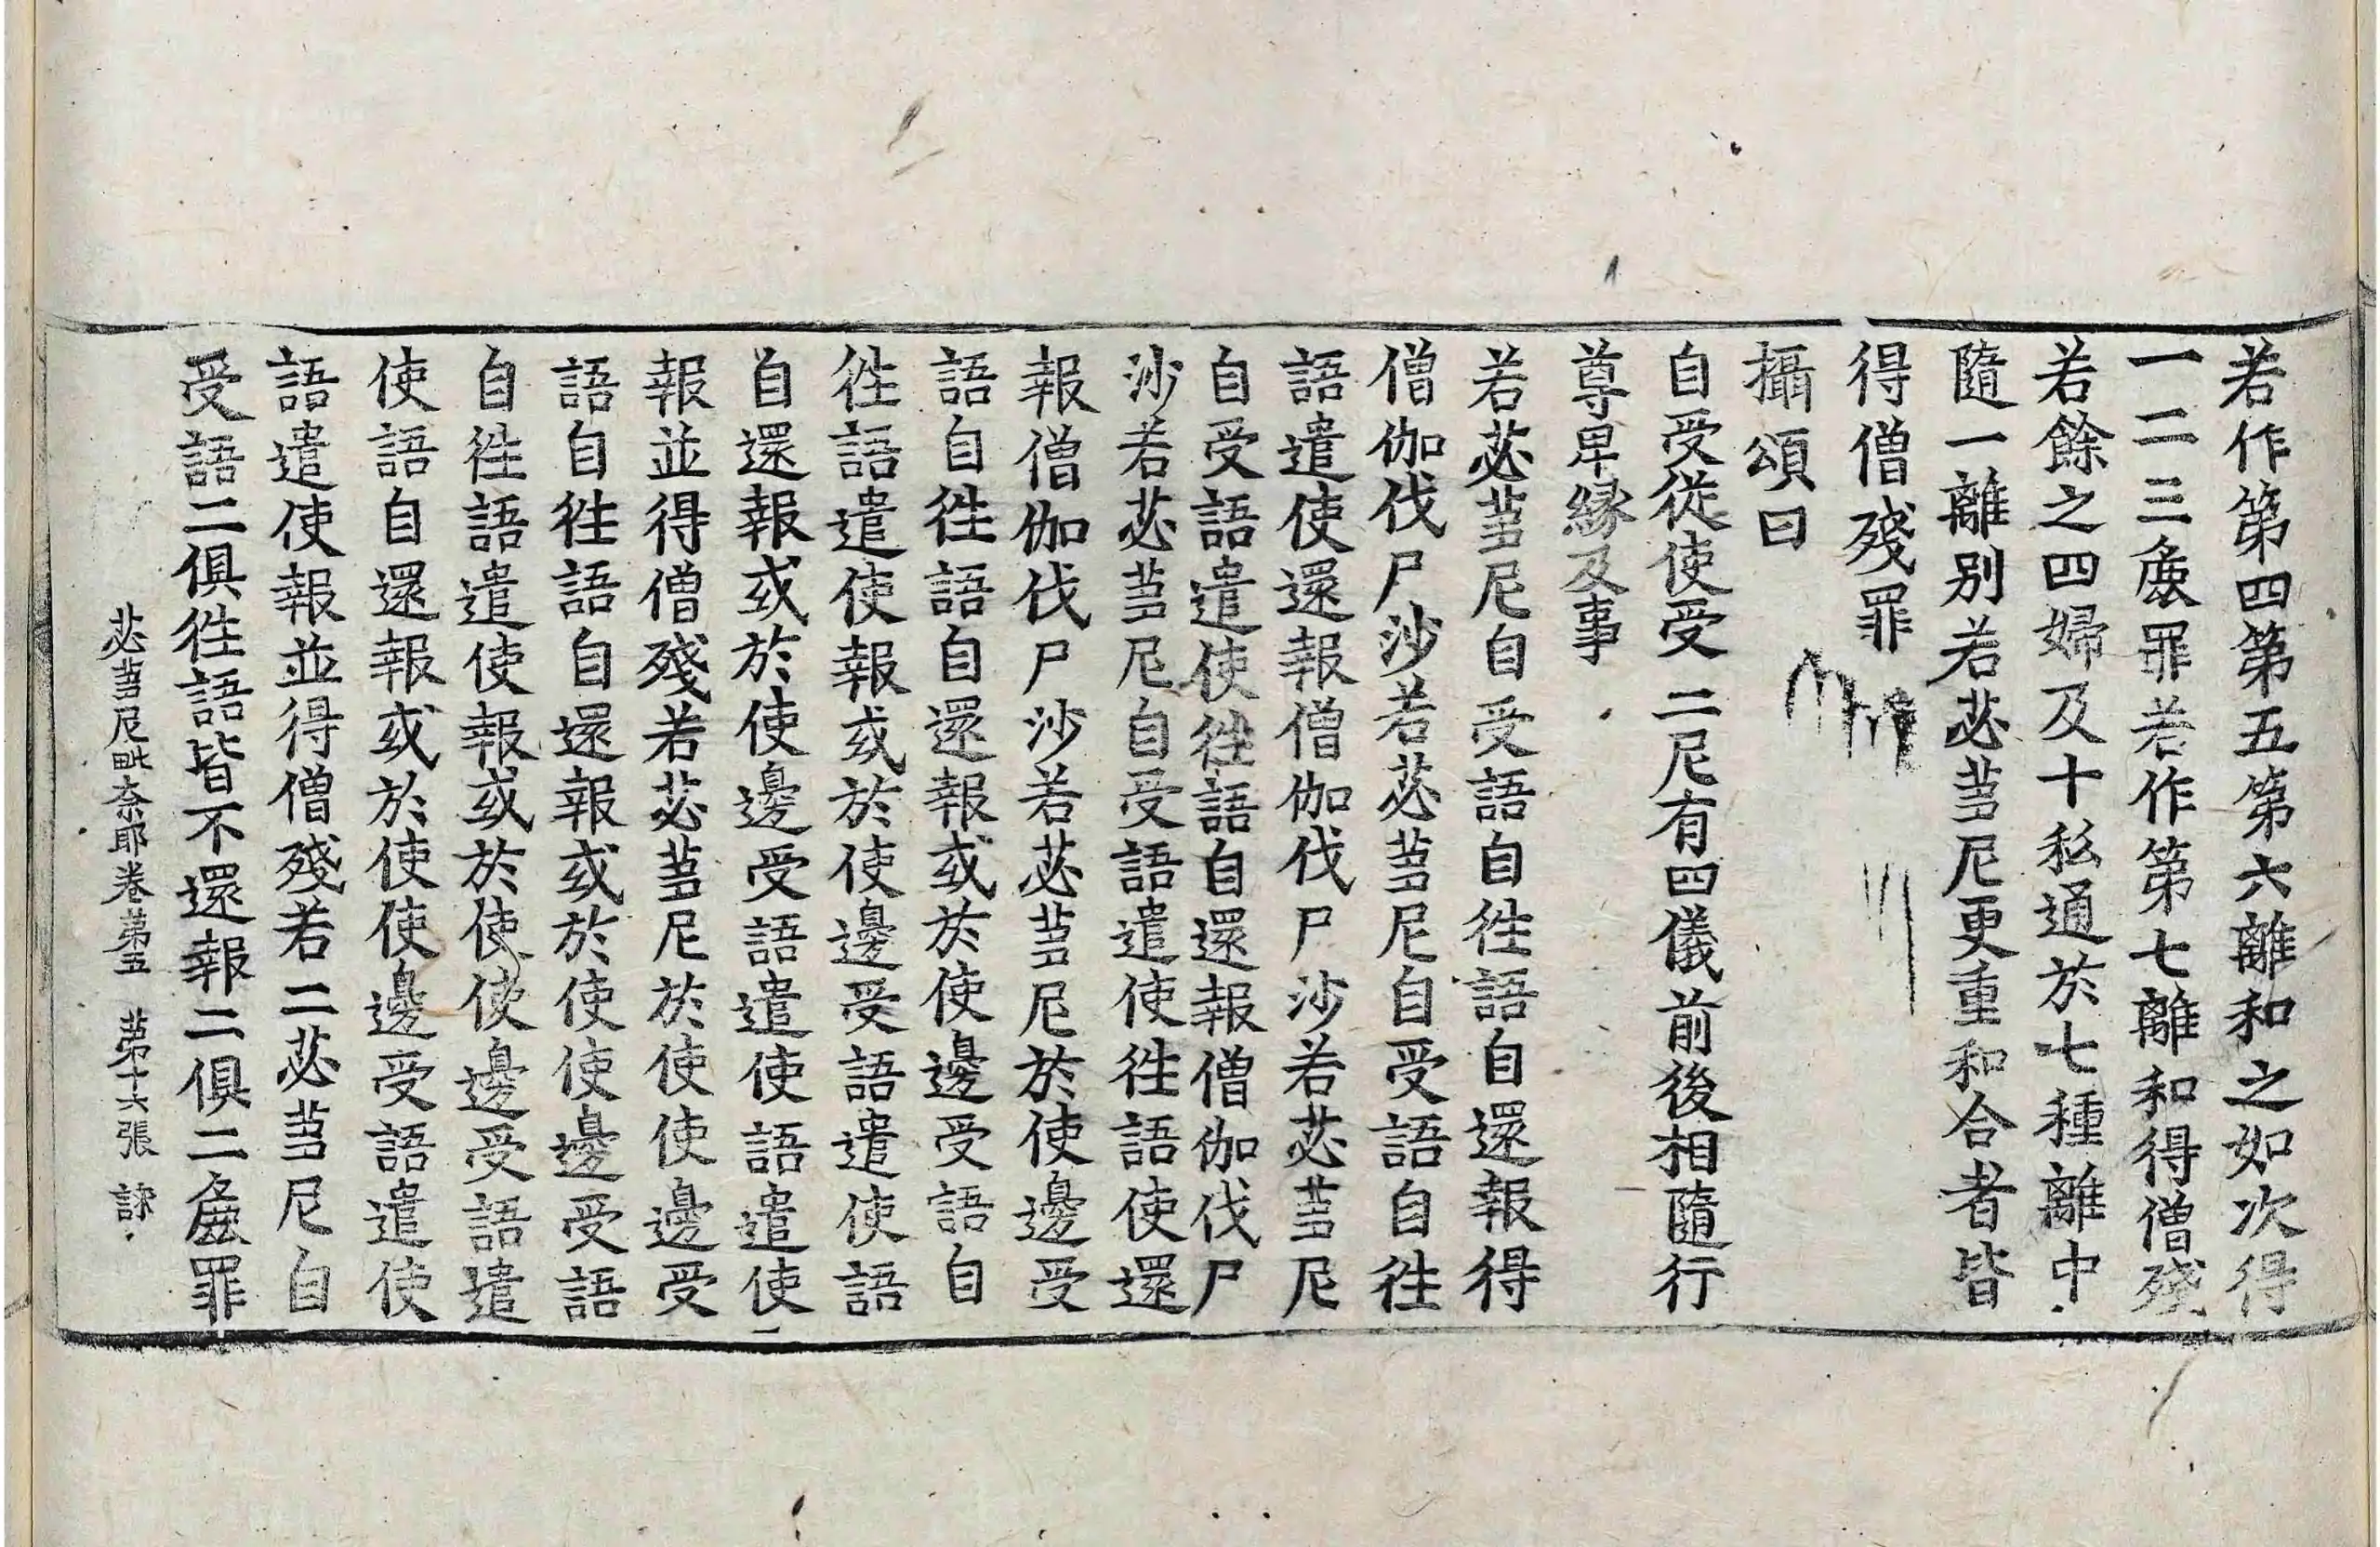 若作第四第五第六離和之如次得
一二三麁罪若作第七離和得僧殘
若餘之四婦及十私通於七種離中
隨一離別若苾蒭尼更重和合者皆
得僧殘罪
攝頌曰
自受従使受 二尼有四儀 前後相隨行
尊卑縁及事
若苾蒭尼自受語自徃語自還報得
僧伽伐尸沙若苾蒭尼自受語自徃
語遣使還報僧伽伐尸沙若苾蒭尼
自受語遣使徃語自還報僧伽伐尸
沙若苾蒭尼自受語遣使徃語使還
報僧伽伐尸沙若苾蒭尼於使邊受
語自徃語自還報或於使邊受語自
徃語遣使報或於使邊受語遣使語
自還報或於使邊受語遣使語遣使
報並得僧殘若苾蒭尼於使使邊受
語自徃語自還報或於使使邊受語
自徃語遣使報或於使使邊受語遣
使語自還報或於使使邊受語遣使
語遣使報並得僧殘若二苾蒭尼自
受語二俱徃語皆不還報二俱二麁罪
苾蒭尼毗奈耶卷第五 第十六張 詠